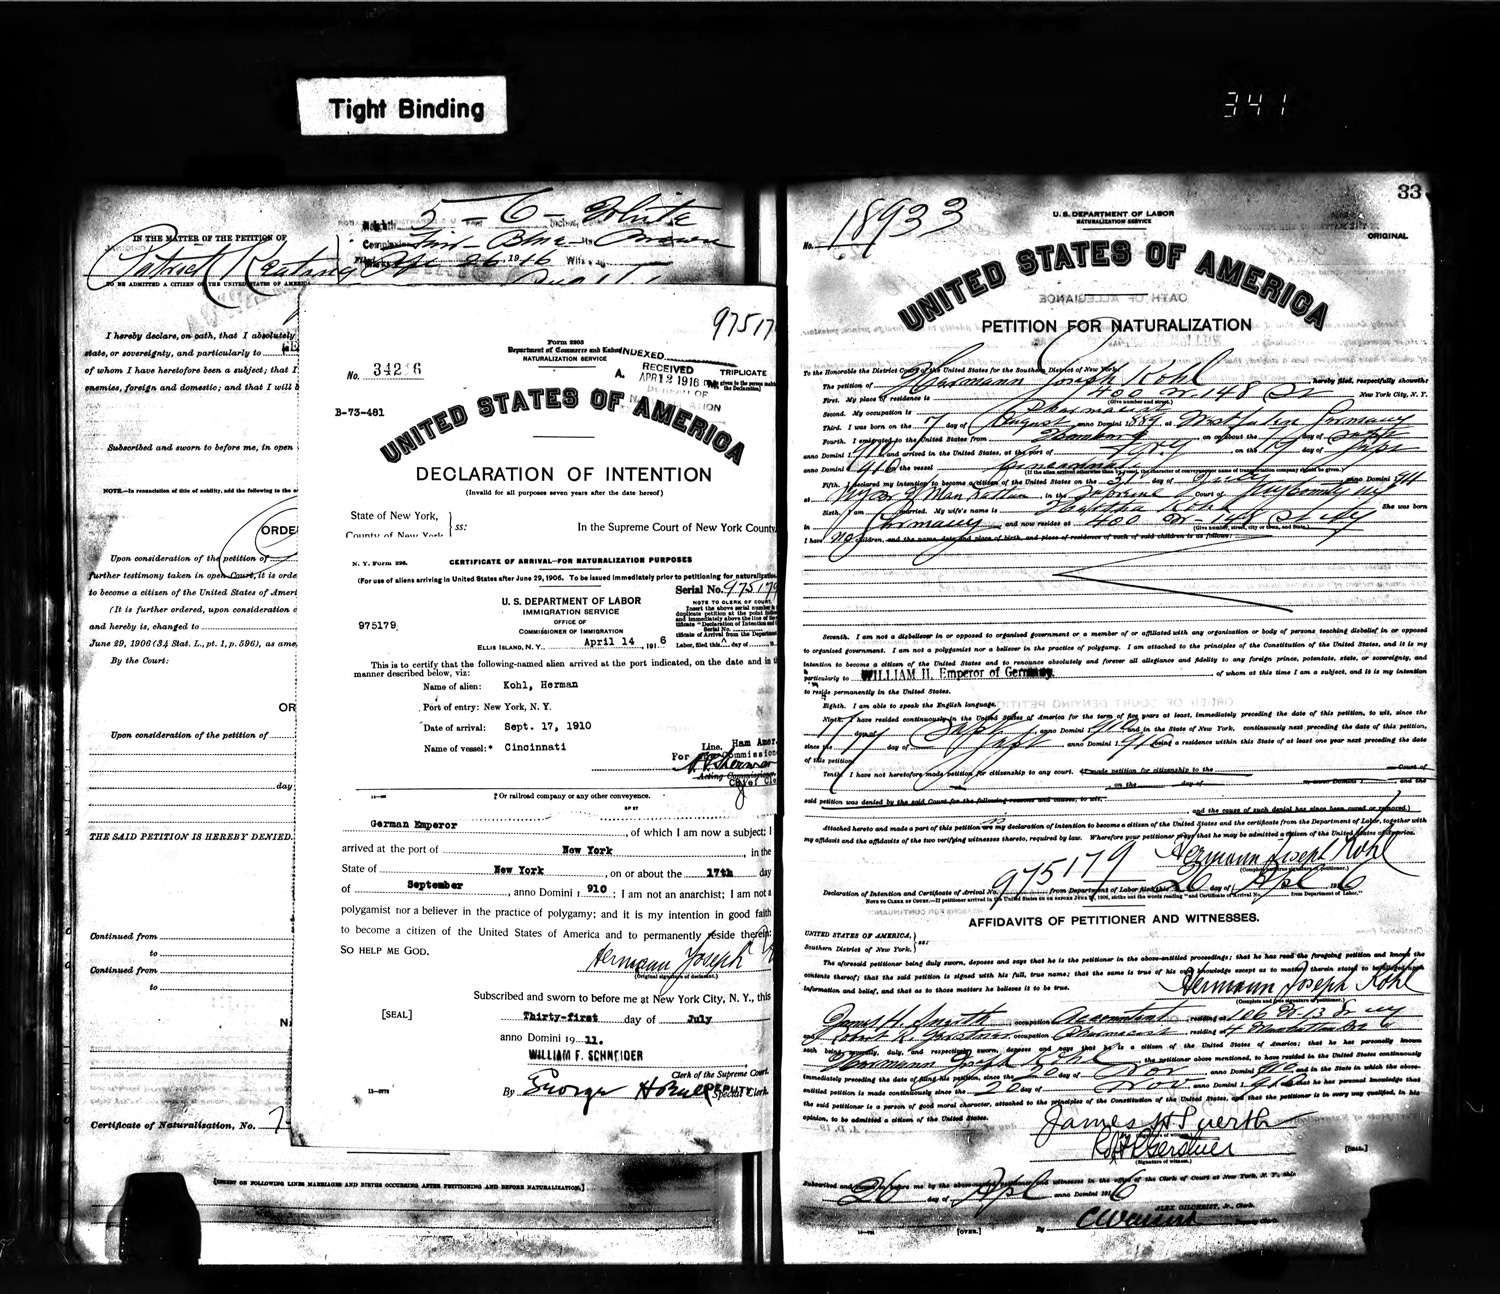 Tight Binding
341
5-6- White
IN THE MATTER OF THE PETITION OF
Complexion Fair - Blue - Brown
Patrick Keating
Apr 26 1916
TO BE ADMITTED A CITIZEN OF THE UNITED STATES OF AMERICA
I hereby declare, on oath, that I absolutely
state, or sovereignty, and particularly to
of whom I have heretofore been a subject; that I
enemies, foreign and domestic; and that I will b
Subscribed and sworn to before me, in open
NOTE.—In renunciation of title of nobility, add the following to the
ORDE
Upon consideration of the petition of
further testimony taken in open Court, it is orde
to become a citizen of the United States of Ameri
(It is further ordered, upon consideration o
and hereby is, changed to
June 29, 1906 (34 Stat. L., pt. 1, p. 596), as ame
By the Court:
OR
Upon consideration of the petition of
day
THE SAID PETITION IS HEREBY DENIED.
Continued from
to
Continued from
to
Certificate of Naturalization, No.
[INSERT ON FOLLOWING LINES MARRIAGES AND BIRTHS OCCURRING AFTER PETITIONING AND BEFORE NATURALIZATION.]
97517
Form 2203
Department of Commerce and Labor
NATURALIZATION SERVICE
INDEXED
RECEIVED
APR 12 1916
TRIPLICATE
No. 34216
B-73-481
UNITED STATES OF AMERICA
DECLARATION OF INTENTION
(Invalid for all purposes seven years after the date hereof)
State of New York,
County of New York
ss:
In the Supreme Court of New York County.
N. Y. Form 226.
CERTIFICATE OF ARRIVAL—FOR NATURALIZATION PURPOSES
(For use of aliens arriving in United States after June 29, 1906. To be issued immediately prior to petitioning for naturalization.
Serial No. 975179
U. S. DEPARTMENT OF LABOR
IMMIGRATION SERVICE
OFFICE OF
COMMISSIONER OF IMMIGRATION
975179
ELLIS ISLAND, N. Y. April 14, 1916
NOTE TO CLERK OF COURT
Insert the above serial number in
duplicate petition at the point
and immediately above the line of the
tificate "Declaration of Intention and
Serial No.
tificate of Arrival from the Department
Labor, filed this day of
This is to certify that the following-named alien arrived at the port indicated, on the date and in t
manner described below, viz:
Name of alien: Kohl, Herman
Port of entry: New York, N. Y.
Date of arrival: Sept. 17, 1910
Name of vessel:* Cincinnati
Line. Ham Amer
For Commissione
Acting Commissioner
Chief Cle
* Or railroad company or any other conveyance.
German Emperor, of which I am now a subject; I
arrived at the port of New York, in the
State of New York, on or about the 17th day
of September, anno Domini 1 910; I am not an anarchist; I am not a
polygamist nor a believer in the practice of polygamy; and it is my intention in good faith
to become a citizen of the United States of America and to permanently reside therein:
SO HELP ME GOD.
Hermann Joseph K
(Original signature of declarant.)
Subscribed and sworn to before me at New York City, N. Y., this
[SEAL]
Thirty-first day of July
anno Domini 19 11.
WILLIAM F. SCHNEIDER
Clerk of the Supreme Court.
By George H Bruce DEPUTY Special Clerk.
33
18933
No.
U. S. DEPARTMENT OF LABOR
NATURALIZATION SERVICE
ORIGINAL
UNITED STATES OF AMERICA
PETITION FOR NATURALIZATION
To the Honorable the District Court of the United States for the Southern District of New York:
The petition of Hermann Joseph Kohl, hereby filed, respectfully showeth:
First. My place of residence is 400 W. 148 St New York City, N. Y.
(Give number and street.)
Second. My occupation is Pharmacist
Third. I was born on the 7 day of August anno Domini 1889 at Westfalen Germany
Fourth. I emigrated to the United States from Hamburg on or about the day of Sept
anno Domini 1910 and arrived in the United States, at the port of N.Y. on the 17 day of Sept
anno Domini 1910 on the vessel Cincinnati
(If the alien arrived otherwise than by vessel, the character of conveyance or name of transportation company should be given.)
Fifth. I declared my intention to become a citizen of the United States on the 31 day of July anno Domini 1911
at Manhattan in the Supreme Court of
Sixth. I am married. My wife's name is Martha Kohl She was born
in Germany and now resides at 400 W-148 St NY
(Give number, street, city or town, and State.)
I have no children, and the name, date and place of birth, and place of residence of each of said children is as follows:
Seventh. I am not a disbeliever in or opposed to organized government or a member of or affiliated with any organization or body of persons teaching disbelief in or opposed
to organized government. I am not a polygamist nor a believer in the practice of polygamy. I am attached to the principles of the Constitution of the United States, and it is my
intention to become a citizen of the United States and to renounce absolutely and forever all allegiance and fidelity to any foreign prince, potentate, state, or sovereignty, and
particularly to WILLIAM II. Emperor of Germany, of whom at this time I am a subject, and it is my intention
to reside permanently in the United States.
Eighth. I am able to speak the English language.
Ninth. I have resided continuously in the United States of America for the term of five years at least, immediately preceding the date of this petition, to wit, since the
17 day of Sept anno Domini 1910 and in the State of New York, continuously next preceding the date of this petition,
since the 17 day of Sept anno Domini 1910 being a residence within this State of at least one year next preceding the date
of this petition.
Tenth. I have not heretofore made petition for citizenship to any court. (I made petition for citizenship to the Court of
, on the day of , anno Domini 1 and the
said petition was denied by the said Court for the following reasons and causes, to wit,
, and the cause of such denial has since been cured or removed.)
Attached hereto and made a part of this petition are my declaration of intention to become a citizen of the United States and the certificate from the Department of Labor, together with
my affidavit and the affidavits of the two verifying witnesses thereto, required by law. Wherefore your petitioner prays that he may be admitted a citizen of the United States of America.
Hermann Joseph Kohl
(Complete and true signature of petitioner.)
Declaration of Intention and Certificate of Arrival No. 975179 from Department of Labor filed this 26 day of Apl 1916
NOTE TO CLERK OF COURT.—If petitioner arrived in the United States on or before June 29, 1906, strike out the words reading "and Certificate of Arrival No. from Department of Labor."
AFFIDAVITS OF PETITIONER AND WITNESSES.
UNITED STATES OF AMERICA,
Southern District of New York.
ss:
The aforesaid petitioner being duly sworn, deposes and says that he is the petitioner in the above-entitled proceedings; that he has read the foregoing petition and knows the
contents thereof; that the said petition is signed with his full, true name; that the same is true of his own knowledge except as to matters therein stated to be alleged upon
information and belief, and that as to those matters he believes it to be true.
Hermann Joseph Kohl
(Complete and true signature of petitioner.)
James H. Suerth, occupation Accountant residing at 106 W. 13 St NY
and Robert R. Gerstner, occupation Pharmacist, residing at 4 Manhattan Ave
each being severally, duly, and respectively sworn, deposes and says that he is a citizen of the United States of America; that he has personally known
Hermann Joseph Kohl, the petitioner above mentioned, to have resided in the United States continuously
immediately preceding the date of filing his petition, since the 20 day of Nov anno Domini 1910 and in the State in which the above-
entitled petition is made continuously since the 20 day of Nov anno Domini 1910 and that he has personal knowledge that
the said petitioner is a person of good moral character, attached to the principles of the Constitution of the United States, and that the petitioner is in every way qualified, in his
opinion, to be admitted a citizen of the United States.
James H Suerth
(Signature of witness.)
R R Gerstner
(Signature of witness.)
[SEAL.]
Subscribed and sworn to before me by the above-named petitioner and witnesses in the office of the Clerk of Court at New York, N. Y., this
26 day of Apl anno Domini 1916
ALEX GILCHRIST, Jr., Clerk.
By Deputy Clerk.
[OVER.]